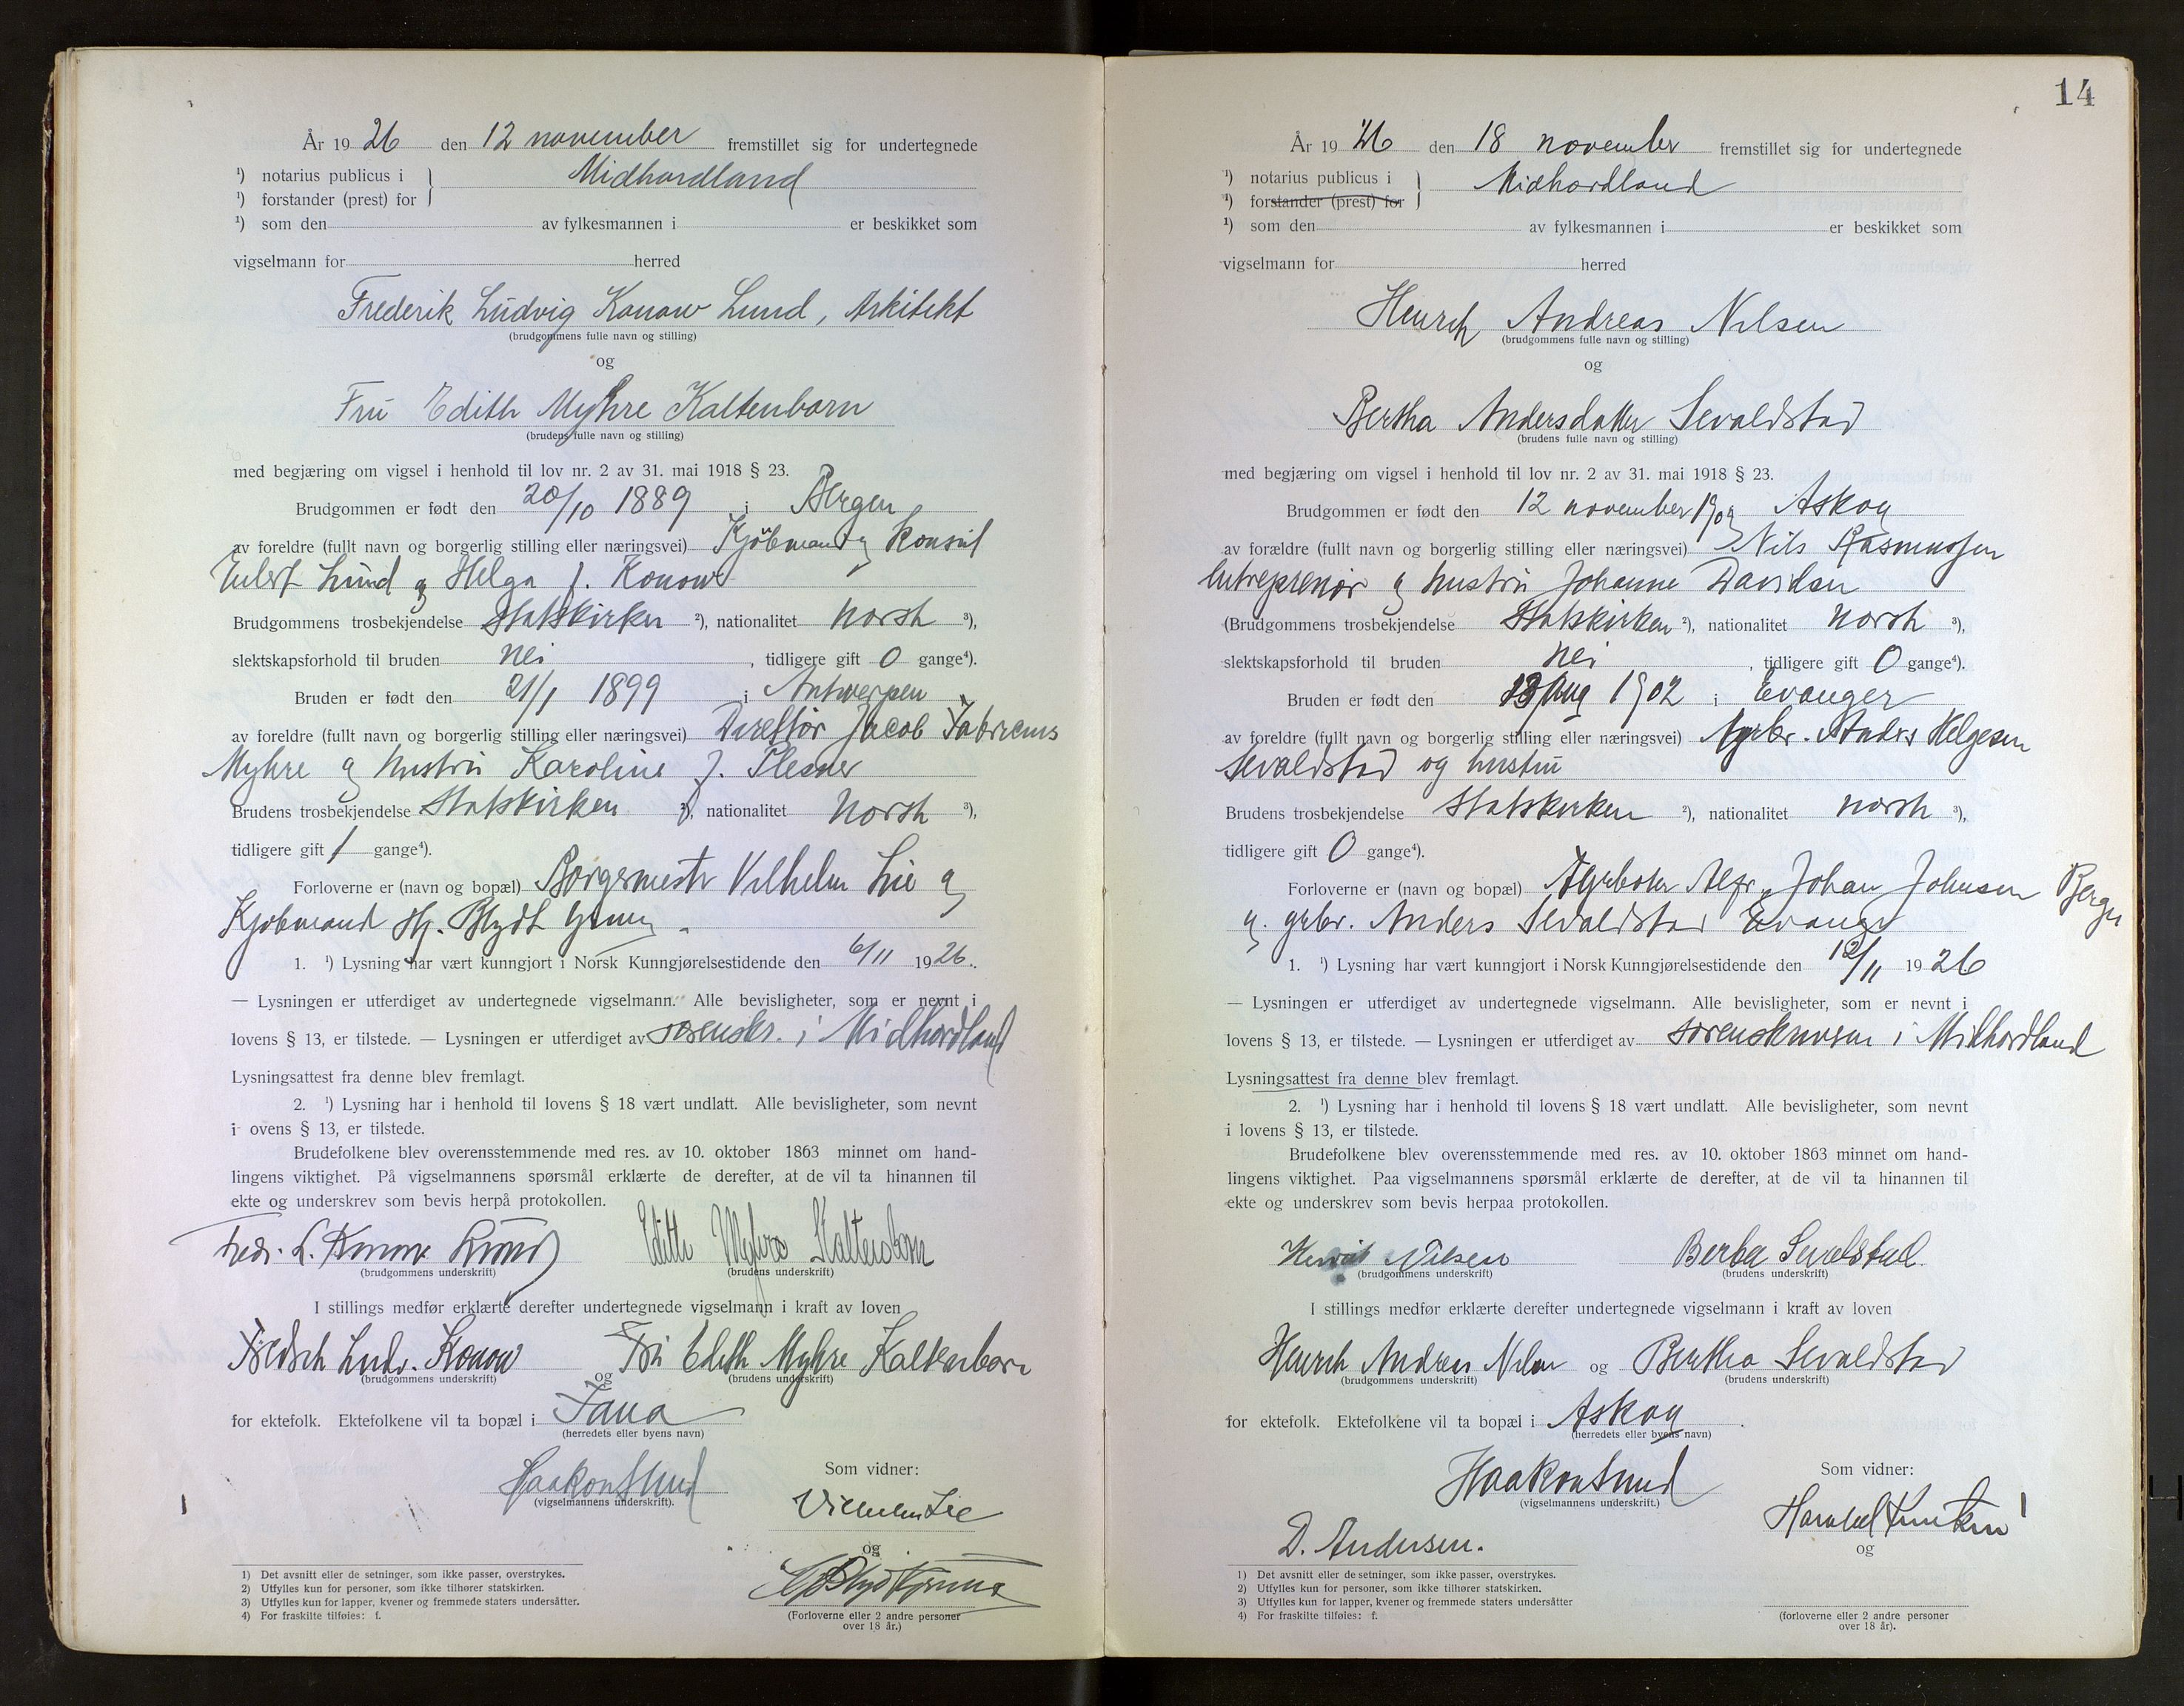 År 1926 den 12 november fremstillet sig for undertegnede
¹) notarius publicus i
Midhordland
¹) forstander (prest) for
¹) som den av fylkesmannen i er beskikket som
vigselmann for herred
Frederik Ludvig Konow Lund, Arkitekt
(brudgommens fulle navn og stilling)
og
Fru Edith Myhre Kaltenborn
(brudens fulle navn og stilling)
med begjæring om vigsel i henhold til lov nr. 2 av 31. mai 1918 § 23.
Brudgommen er født den 20/10 1889 i Bergen
av foreldre (fullt navn og borgerlig stilling eller næringsvei) Kjøbmand og Konsul
Eilert Lund og Helga f. Konow
Brudgommens trosbekjendelse Statskirken ²), nationalitet norsk ³),
slektskapsforhold til bruden nei , tidligere gift 0 gange⁴).
Bruden er født den 21/1 1899 i Antwerpen
av foreldre (fullt navn og borgerlig stilling eller næringsvei) Direktør Jacob Fabricius
Myhre og hustru Karoline f. Plesner
Brudens trosbekjendelse Statskirken ²), nationalitet norsk ³),
tidligere gift 1 gange⁴).
Forloverne er (navn og bopæl) Borgermester Vilhelm Lie og
Kjøbmand Hj. Blydt
1. ¹) Lysning har vært kunngjort i Norsk Kunngjørelsestidende den 6/11 1926.
— Lysningen er utferdiget av undertegnede vigselmann. Alle bevisligheter, som er nevnt i
lovens § 13, er tilstede. — Lysningen er utferdiget av sorenskr. i Midhordland
Lysningsattest fra denne blev fremlagt.
2. ¹) Lysning har i henhold til lovens § 18 vært undlatt. Alle bevisligheter, som nevnt
i ovens § 13, er tilstede.
Brudefolkene blev overensstemmende med res. av 10. oktober 1863 minnet om hand-
lingens viktighet. På vigselmannens spørsmål erklærte de derefter, at de vil ta hinannen til
ekte og underskrev som bevis herpå protokollen.
Fredr. L. Konow Lund Edith Myhre Kaltenborn
(brudgommens underskrift) (brudens underskrift)
I stillings medfør erklærte derefter undertegnede vigselmann i kraft av loven
Fredrik Ludv. Konow og Fru Edith Myhre Kaltenborn
(brudgommens underskrift) (brudens underskrift)
for ektefolk. Ektefolkene vil ta bopæl i Fana
(herredets eller byens navn)
Haakon Lund
(vigselmannens underskrift).
Som vidner:
Vilhelm Lie
og
(Forloverne eller 2 andre personer
over 18 år.)
1) Det avsnitt eller de setninger, som ikke passer, overstrykes.
2) Utfylles kun for personer, som ikke tilhører statskirken.
3) Utfylles kun for lapper, kvener og fremmede staters undersåtter.
4) For fraskilte tilføies: f.
14
År 1926 den 18 november fremstillet sig for undertegnede
¹) notarius publicus i
Midhordland
¹) forstander (prest) for
¹) som den av fylkesmannen i er beskikket som
vigselmann for herred
Henrik Andreas Nilsen
(brudgommens fulle navn og stilling)
og
Bertha Andersdatter Sevaldstad
(brudens fulle navn og stilling)
med begjæring om vigsel i henhold til lov nr. 2 av 31. mai 1918 § 23.
Brudgommen er født den 12 november 1904 Askøy
av forældre (fullt navn og borgerlig stilling eller næringsvei) Nils Rasmussen
entreprenør og hustru Johanne Davidsen
(Brudgommens trosbekjendelse Statskirken ²), nationalitet norsk ³),
slektskapsforhold til bruden nei , tidligere gift 0 gange⁴).
Bruden er født den 13 Aug 1902 i Evanger
av foreldre (fullt navn og borgerlig stilling eller næringsvei) Anders Helgesen
Sevaldstad og hustru
Brudens trosbekjendelse Statskirken ²), nationalitet norsk ³),
tidligere gift 0 gange⁴).
Forloverne er (navn og bopæl) Johan Johnsen Bergen
og grbr. Anders Sevaldstad Evanger
1. ¹) Lysning har vært kunngjort i Norsk Kunngjørelsestidende den 12/11 1926
— Lysningen er utferdiget av undertegnede vigselmann. Alle bevisligheter, som er nevnt i
lovens § 13, er tilstede. — Lysningen er utferdiget av sorenskriveren i Midhordland
Lysningsattest fra denne blev fremlagt.
2. ¹) Lysning har i henhold til lovens § 18 vært undlatt. Alle bevisligheter, som nevnt
i lovens § 13, er tilstede.
Brudefolkene blev overensstemmende med res. av 10. oktober 1863 minnet om hand-
lingens viktighet. Paa vigselmannens spørsmål erklærte de derefter, at de vil ta hinannen til
ekte og underskrev som bevis herpaa protokollen.
Henrik Nilsen Berta Sevaldstad.
(brudgommens underskrift) (brudens underskrift)
I stillings medfør erklærte derefter undertegnede vigselmann i kraft av loven
Henrik Andreas Nilsen og Bertha Sevaldstad
(brudgommens underskrift) (brudens underskrift)
for ektefolk. Ektefolkene vil ta bopæl i Askøy .
(herredets eller byens navn)
Haakon Lund
(vigselmannens underskrift.)
Som vidner:
og
D. Andersen.
(forloverne eller 2 andre personer
over 18 år).
1) Det avsnitt eller de setninger, som ikke passer, overstrykes.
2) Utfylles kun for personer, som ikke tilhører statskirken.
3) Utfylles kun for lapper, kvener og fremmede staters undersåtter
4) For fraskilte tilføies: f.